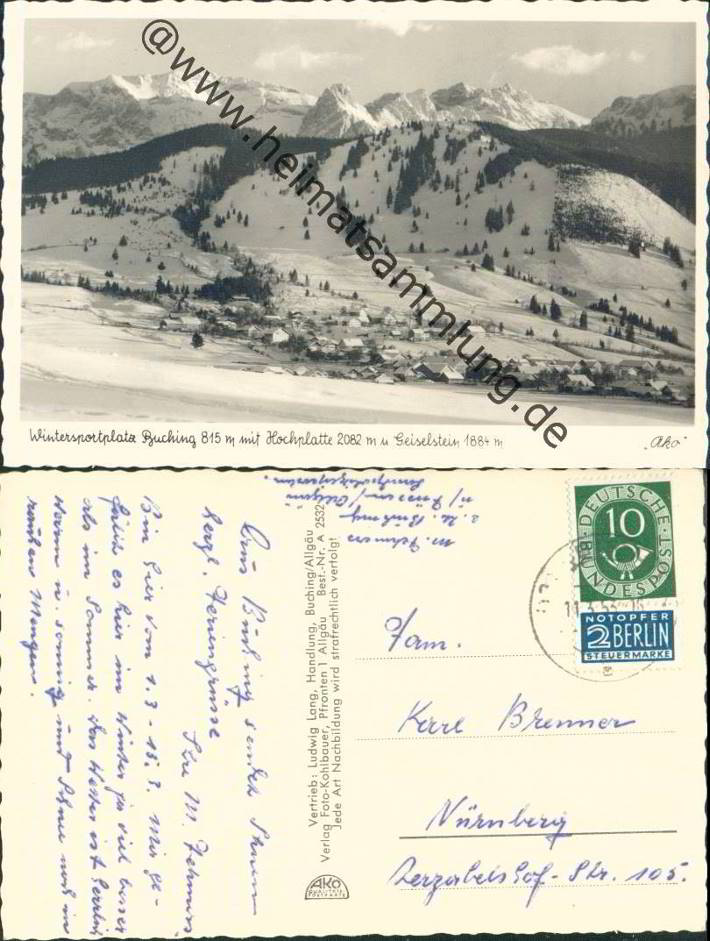 @www.heimatsammlung.de
Wintersportplatz Buching 815 m mit Hochplatte 2082 m u Geiselstein 1884 m
"Ako"
Aus Buching sendet
herzl. Feriengrüsse
Ihre M.
Bin hier vom 1.3 - 15.3. Mir ge-
fällt es hier im Winter ja viel besser
als im Sommer. Das Wetter ist herrlich
warm u. sonnig und Schnee noch in
rauhen Mengen.
M.
z. Zt. Buching
ü/ Füssen/Allgäu
Vertrieb: Ludwig Lang, Handlung, Buching/Allgäu
Verlag Foto-Kohlbauer, Pfronten 1 Allgäu Best.-Nr. A 2532
Jede Art Nachbildung wird strafrechtlich verfolgt
AKO
DEUTSCHE
10
BUNDESPOST
NOTOPFER
2 BERLIN
STEUERMARKE
11.3.53
Fam.
Karl Brenner
Nürnberg
Herzabelshof-Str. 105.